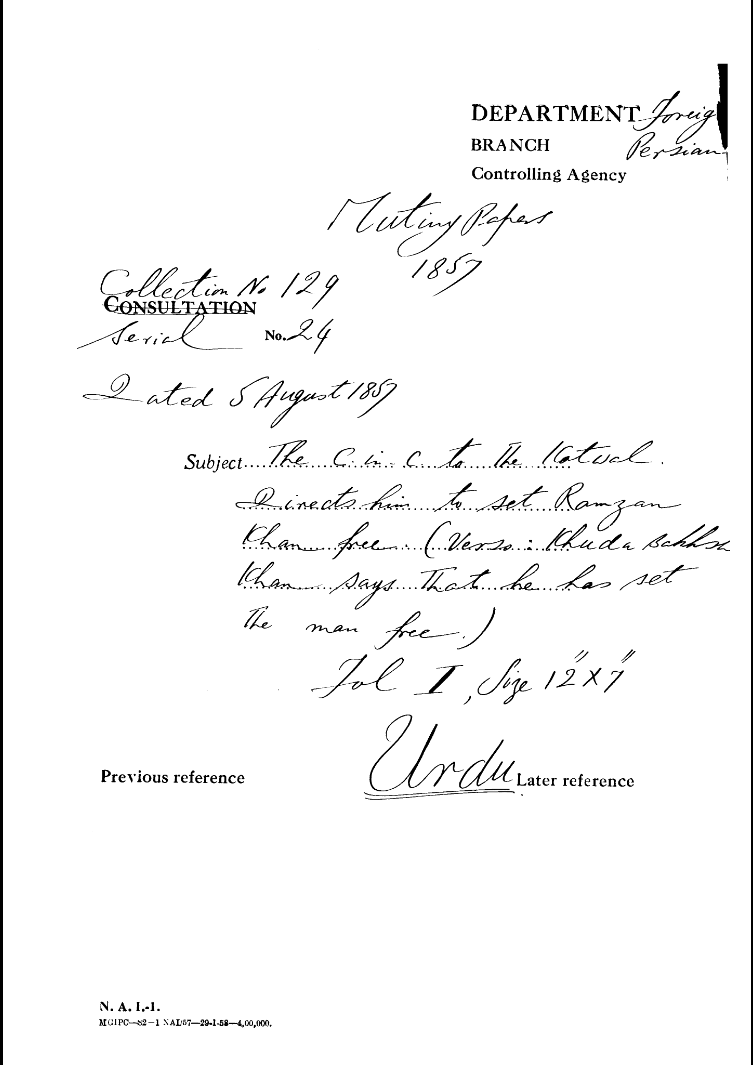 DEPARTMENT Foreig
BRANCH Persian
Controlling Agency
Mutiny Papers
1857
Collection No 129
CONSULTATION
Serial No. 24
Dated 5 August 1857
Subject The C. in. C to the Kotwal.
Directs him to set Ramzan
Khan free. (Verso: Khuda Bakhsh
Khan says that he has set
the man free.)
Fol I, Size 12" x 7"
Urdu
Previous reference Later reference
N. A. I.-1.
MGIPC—82—1 NAI/57—29-1-58—4,00,000.